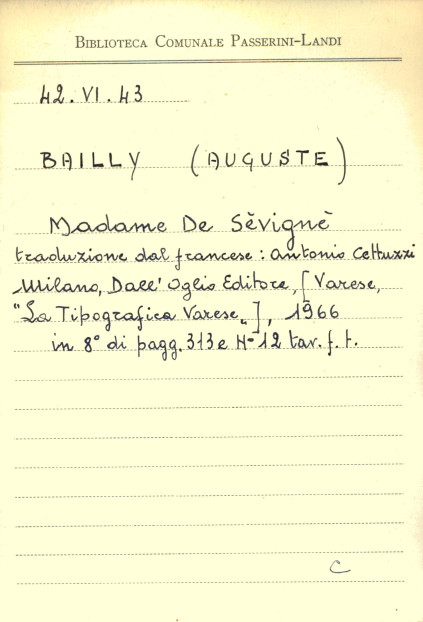 BIBLIOTECA COMUNALE PASSERINI-LANDI
42.VI.43
BAILLY (AUGUSTE)
Madame De Sèvignè
traduzione dal francese: Antonio Cettuzzi
Milano, Dall'Oglio Editore, [Varese,
"La Tipografica Varese"], 1966
in 8° di pagg. 313 e N-12 tav. f. t.
C